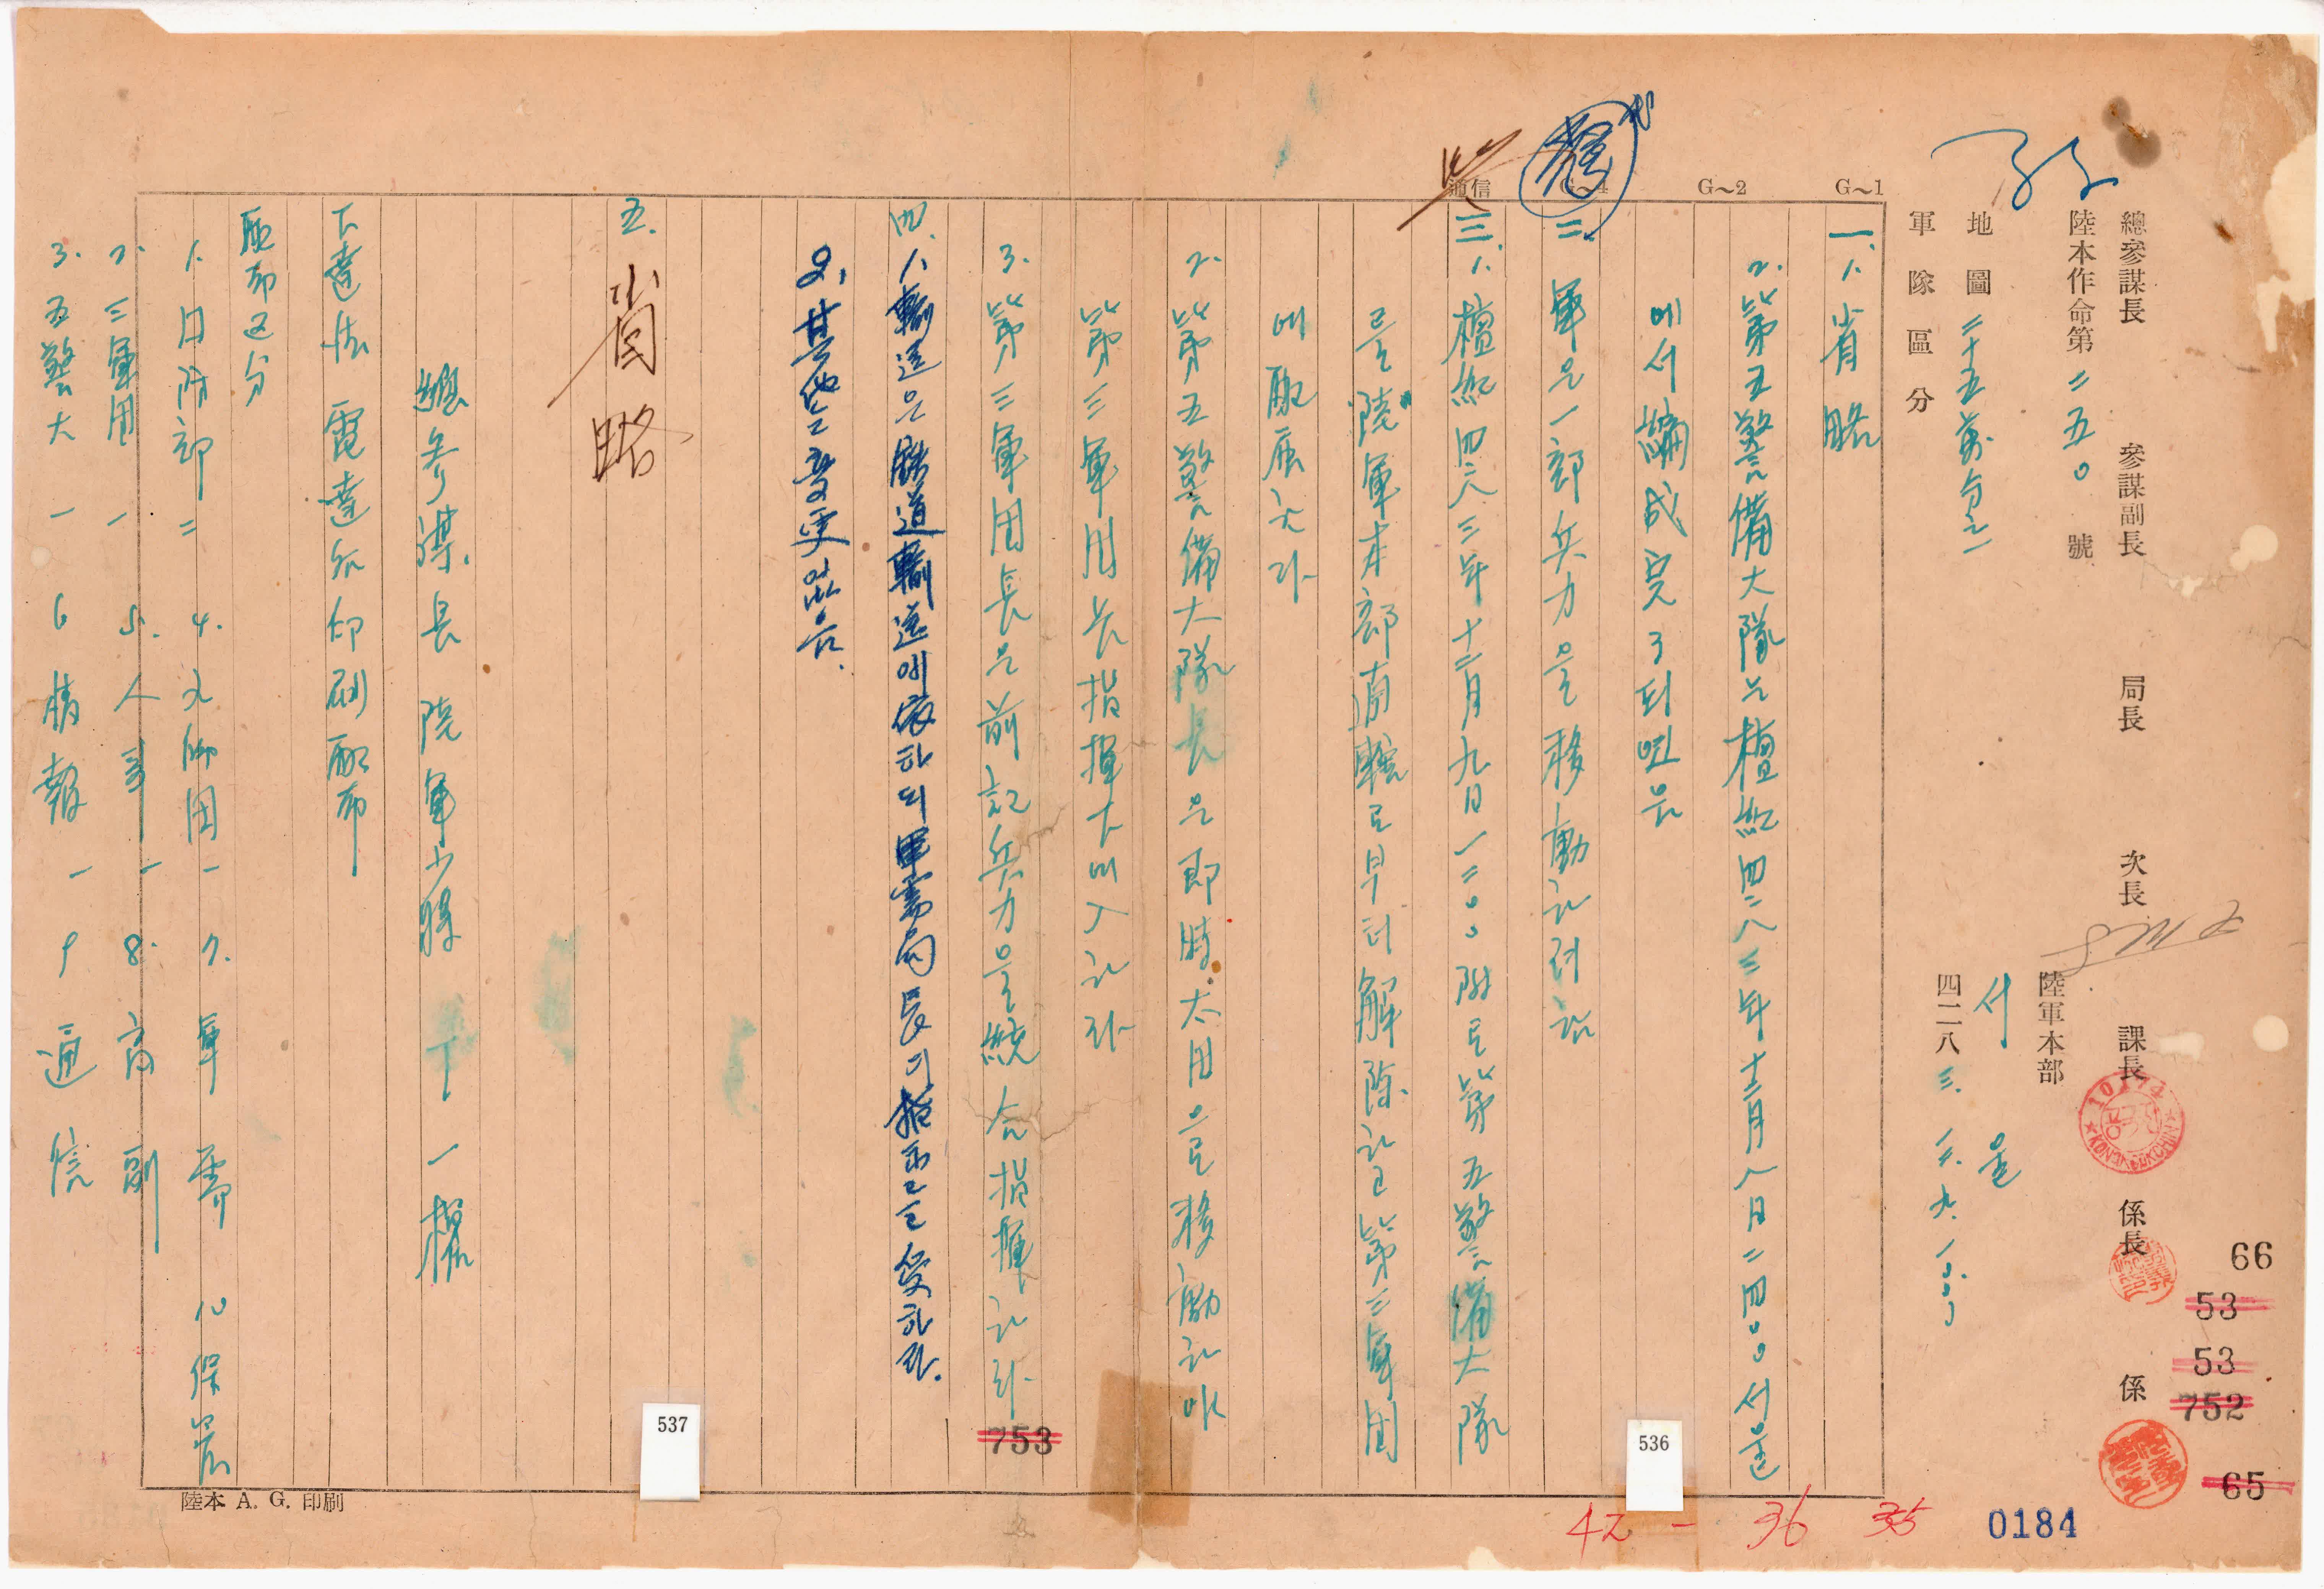 總參謀長 參謀副長 局長 次長 課長 係長 係
陸本作命第二五〇號
陸軍本部
地圖 二十五萬分之一
서울
軍隊區分
四二八三.一二.九.一〇〇〇
G~1 G~2 G~4 通信
一. 1. 省略
2. 第五警備大隊는 檀紀四二八三年十二月八日二四〇〇서울
에서 編成完了되였음
二 軍은 一部兵力을 移動하려함
三. 1. 檀紀四二八三年十二月九日一二〇〇附로 第五警備大隊
를 陸軍本部直轄로부터 解除하고 第三軍団
에 配属하라
2. 第五警備大隊長은 即時太田으로 移動하야
第三軍団長指揮下에 入하라
3. 第三軍団長은 前記兵力을 統合指揮하라
四. 1. 輸送은 鉄道輸送에 依하되 軍需局長의 指示를 受하라.
2. 其他는 変更없음.
五. 省略
總参謀長 陸軍少將 丁一權
下達法 電達後印刷配布
配布区分
1. 日附部 二 4. 九師団 一 7. 軍需 10 保管
2. 三軍団 一 5. 人事 一 8. 高副
3. 五警大 一 6 情報 一 9 通信
陸本 A. G. 印刷
10174
KONGVOKCHIN
66
53
53
752
65
753
537
536
42 - 36 35
0184